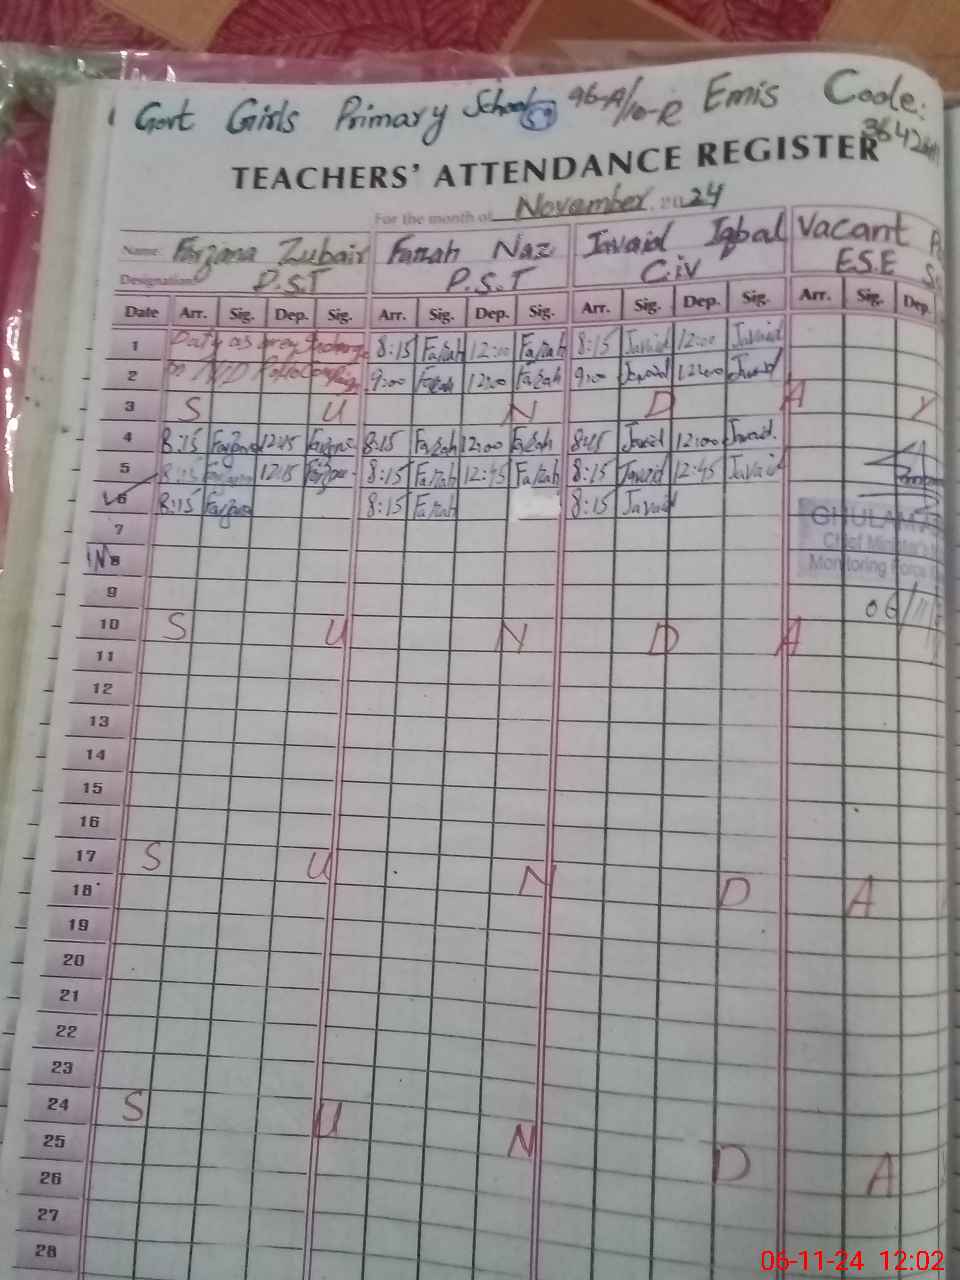 Govt Girls Primary School 96-A/10-R Emis Code:
TEACHERS' ATTENDANCE REGISTER
For the month of November 2024
Name: Farzana Zubair Farrah Naz Javaid Iqbal Vacant
Designation: P.S.T P.S.T C.iv E.S.E
Date Arr. Sig. Dep. Sig. Arr. Sig. Dep. Sig. Arr. Sig. Dep. Sig. Arr. Sig. Dep.
1 Duty as 8:15 Farrah 12:00 Farrah 8:15 Javaid 12:00 Javaid
2 on Polio 9:00 Farrah 12:00 Farrah 9:00 Javaid 12:00 Javaid
3 S U N D A Y
4 8:15 Farzana 12:15 Farzana 8:15 Farrah 12:00 Farrah 8:15 Javaid 12:00 Javaid
5 8:15 Farzana 12:15 Farzana 8:15 Farrah 12:45 Farrah 8:15 Javaid 12:45 Javaid
6 8:15 Farzana 8:15 Farrah 8:15 Javaid
7 GHULAM
Chief Minister's
8 Monitoring Force
9 06/11/
10 S U N D A
11
12
13
14
15
16
17 S U N D A
18
19
20
21
22
23
24 S U N D A
25
26
27
28
06-11-24 12:02